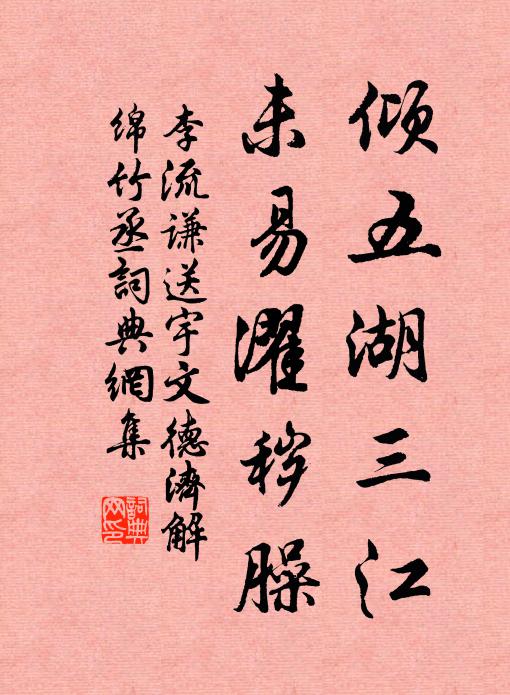 倾五湖三江
未易濯秽臊
李流谦送宇文德济解
绵竹丞詞典網集
詞典
网印